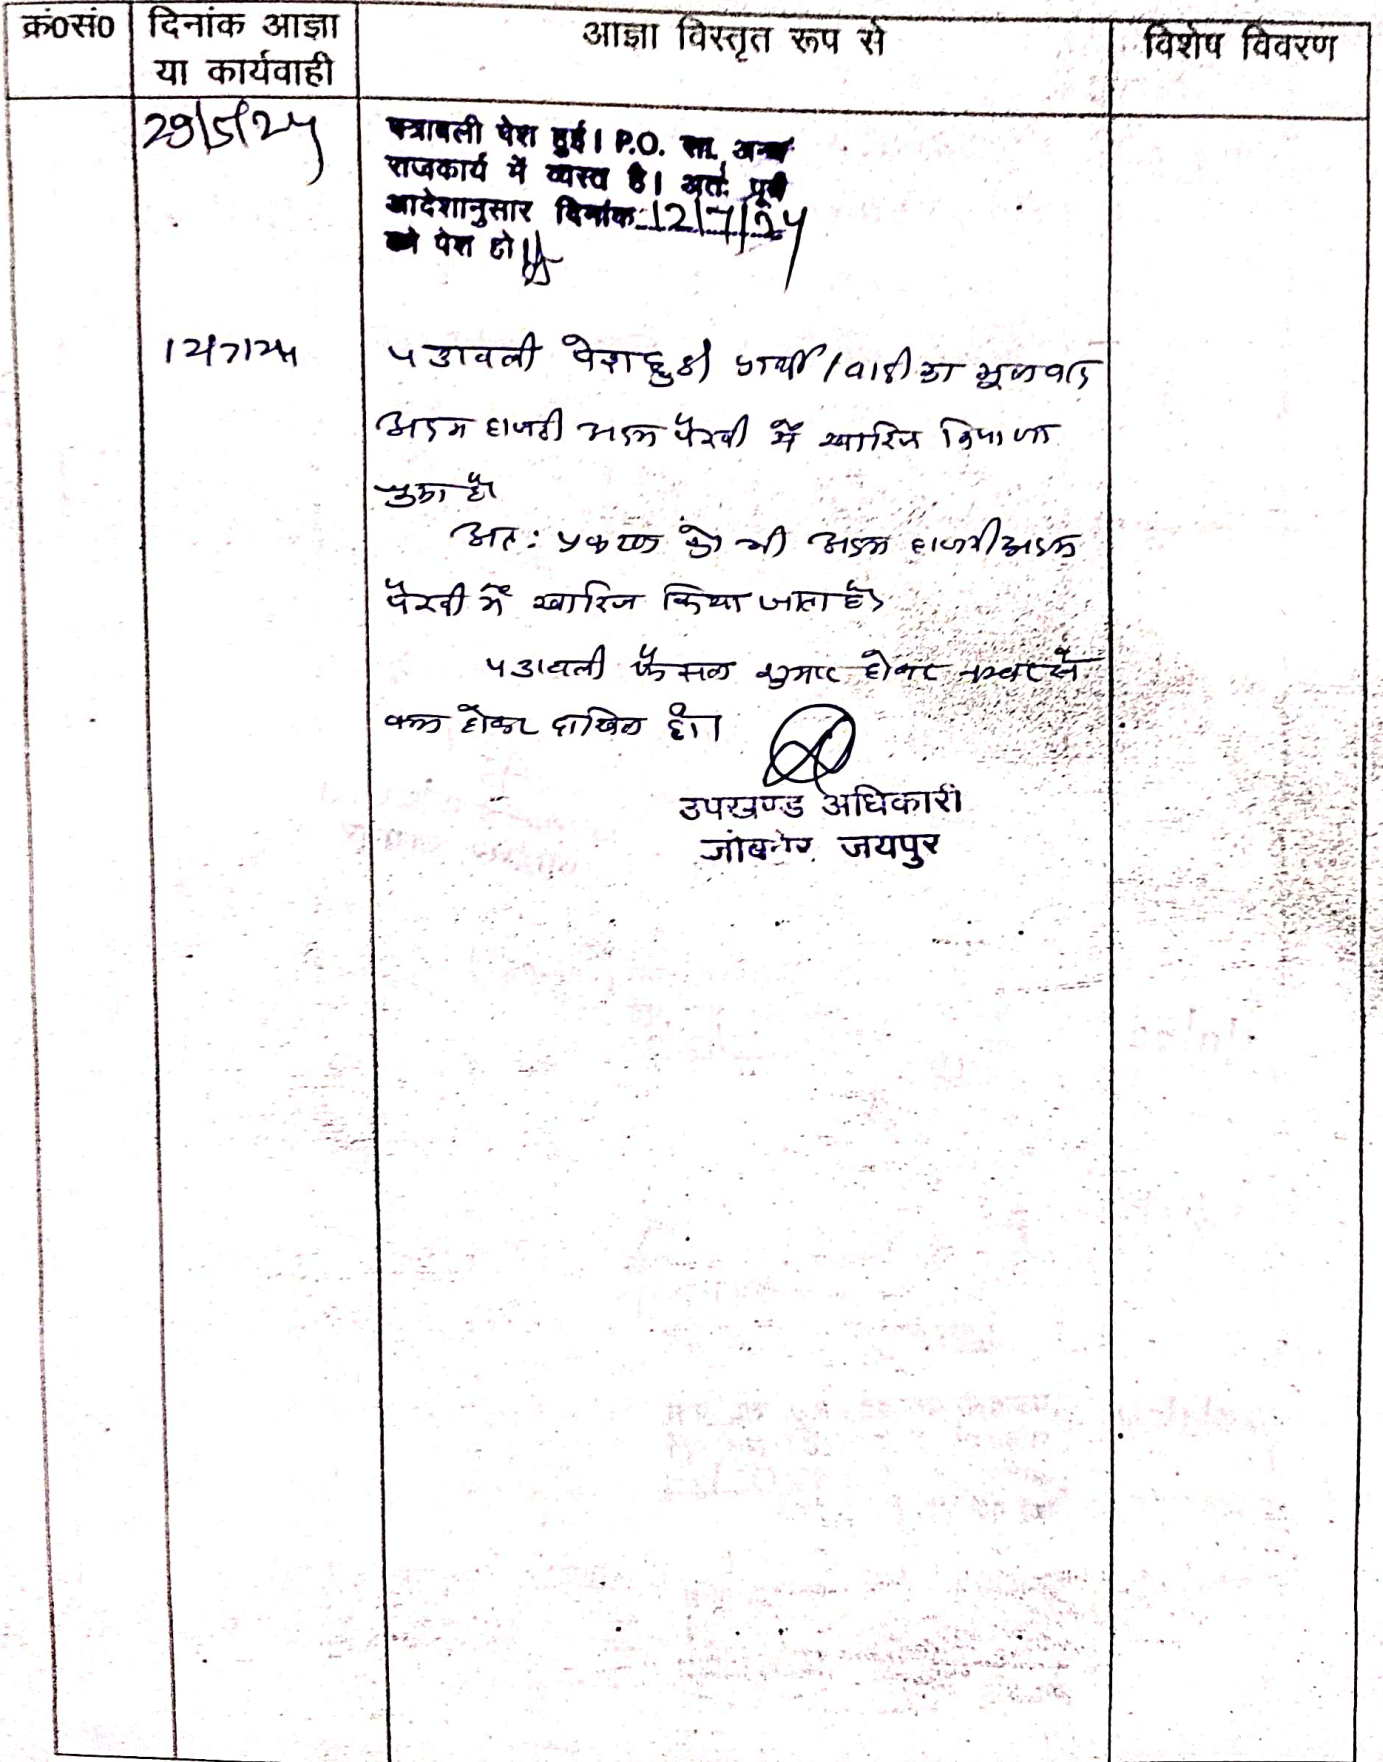 क्रं0सं0
दिनांक आज्ञा
या कार्यवाही
आज्ञा विस्तृत रूप से
विशेष विवरण
29/5/24
पत्रावली पेश हुई। P.O. सा. अन्य
राजकार्य में व्यस्त है। अतः पूर्व
आदेशानुसार दिनांक 12/7/24
को पेश हो।
12/7/24
पत्रावली पेश हुई। प्रार्थी/वादी का मूल वाद
अदम हाजरी अदम पैरवी में खारिज किया जा
चुका है।
अत: प्रकरण को भी अदम हाजरी अदम
पैरवी में खारिज किया जाता है।
पत्रावली फैसल शुमार होकर नम्बर से
कम होकर दाखिल हो।
उपखण्ड अधिकारी
जोबनेर, जयपुर